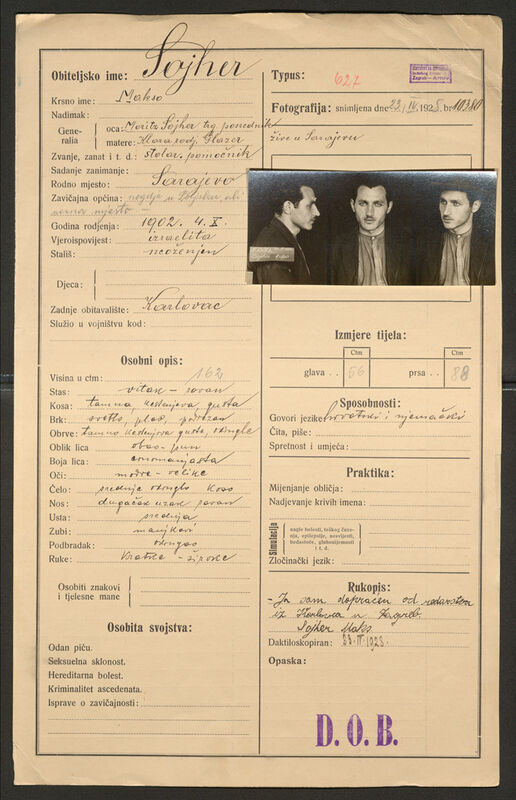 Obiteljsko ime: Sojher
Krsno ime: Makso
Nadimak:
Generalia
oca: Morits Sojher trg. pomoćnik
matere: Klara rodj. Glazer
Zvanje, zanat i t. d.: stolar. pomoćnik
Sadanje zanimanje:
Rodno mjesto: Sarajevo
Zavičajna općina: negdje u Poljskoj ali
nezna mjesto
Godina rodjenja: 1902. 4. X.
Vjeroispovijest: izraelita
Stališ: neoženjen
Djeca:
Zadnje obitavalište: Karlovac
Služio u vojništvu kod:
Osobni opis:
Visina u ctm: 162
Stas: vitak – ravan
Kosa: tamna, kestenjeva, gusta
Brk: svetlo, plav, podrezan
Obrve: tamno kestenjove guste, okrugle
Oblik lica obao – pun
Boja lica: crnomanjasta
Oči: modre – velike
Čelo: srednje okruglo koso
Nos: dugačak uzak ravan
Usta: srednja
Zubi: manjkavi
Podbradak: okrugao
Ruke: kratke – široke
Osobiti znakovi
i tjelesne mane
Osobita svojstva:
Odan piću.
Seksuelna sklonost.
Hereditarna bolest.
Kriminalitet ascedenata.
Isprave o zavičajnosti:
Typus: 627
Fotografija: snimljena dne 23/IV. 1928. br 10380
žive u Sarajevu
Izmjere tijela:
Ctm
Ctm
glava . . 56
prsa . . 88
Sposobnosti:
Govori jezike: hrvatski i njemački
Čita, piše:
Spretnost i umjeća:
Praktika:
Mijenjanje obličja:
Nadjevanje krivih imena:
Simulacija
nagle bolesti, teškog čuvenja,
epilepsije, nesvijesti,
bedastoće, gluhonijemosti
i t. d.
Zločinački jezik:
Rukopis:
- Ja sam dopraćen od redarstva
iz Karlovca u Zagreb.
Sojher Maks.
Daktiloskopiran: 23. IV. 1928.
Opaska:
D. O. B.